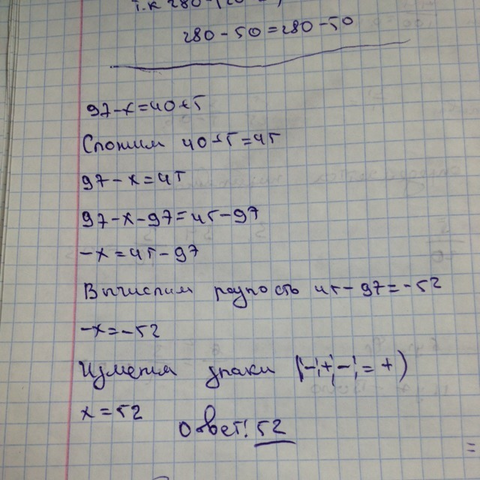 т.к 280-
280-50=280-50
97-x=40+5
Сложим 40+5=45
97-x=45
97-x-97=45-97
-x=45-97
Вычислим разность 45-97=-52
-x=-52
Изменим знаки (-;+;-;=+)
x=52
Ответ: 52
=